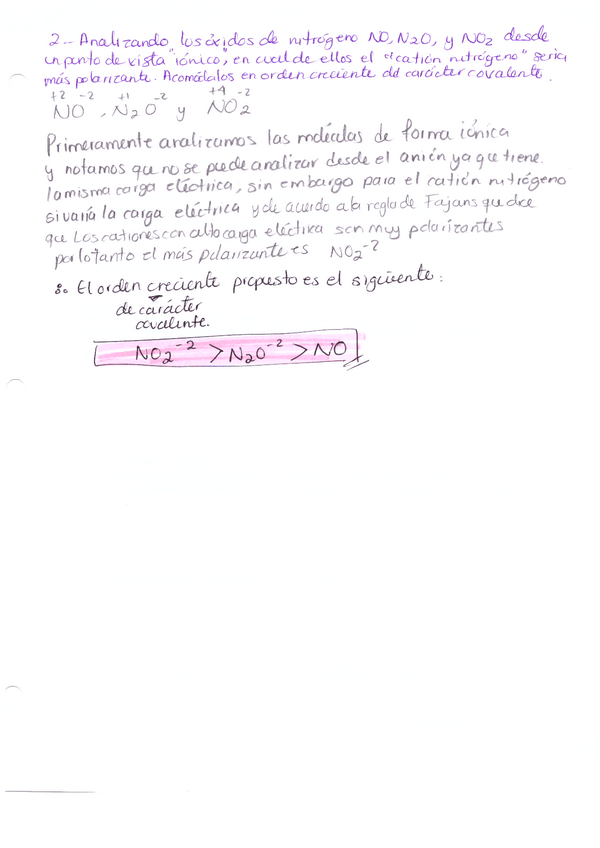 2.- Analizando los óxidos de nitrógeno NO, N2O, y NO2 desde
un punto de vista "iónico", en cual de ellos el "catión nitrógeno" seria
más polarizante. Acomódalos en orden creciente del carácter covalente.
+2 -2 +1 -2 +4 -2
NO , N2O y NO2
Primeramente analizamos las moléculas de forma iónica
y notamos que no se puede analizar desde el anión ya que tiene
la misma carga eléctrica, sin embargo para el catión nitrógeno
si varía la carga eléctrica y de acuerdo a la regla de Fajans que dice
que Los cationes con alto carga eléctrica son muy polarizantes
por lo tanto el más polarizante es NO2-2
∴ El orden creciente propuesto es el siguiente:
de carácter
covalente.
NO2-2 > N2O-2 > NO